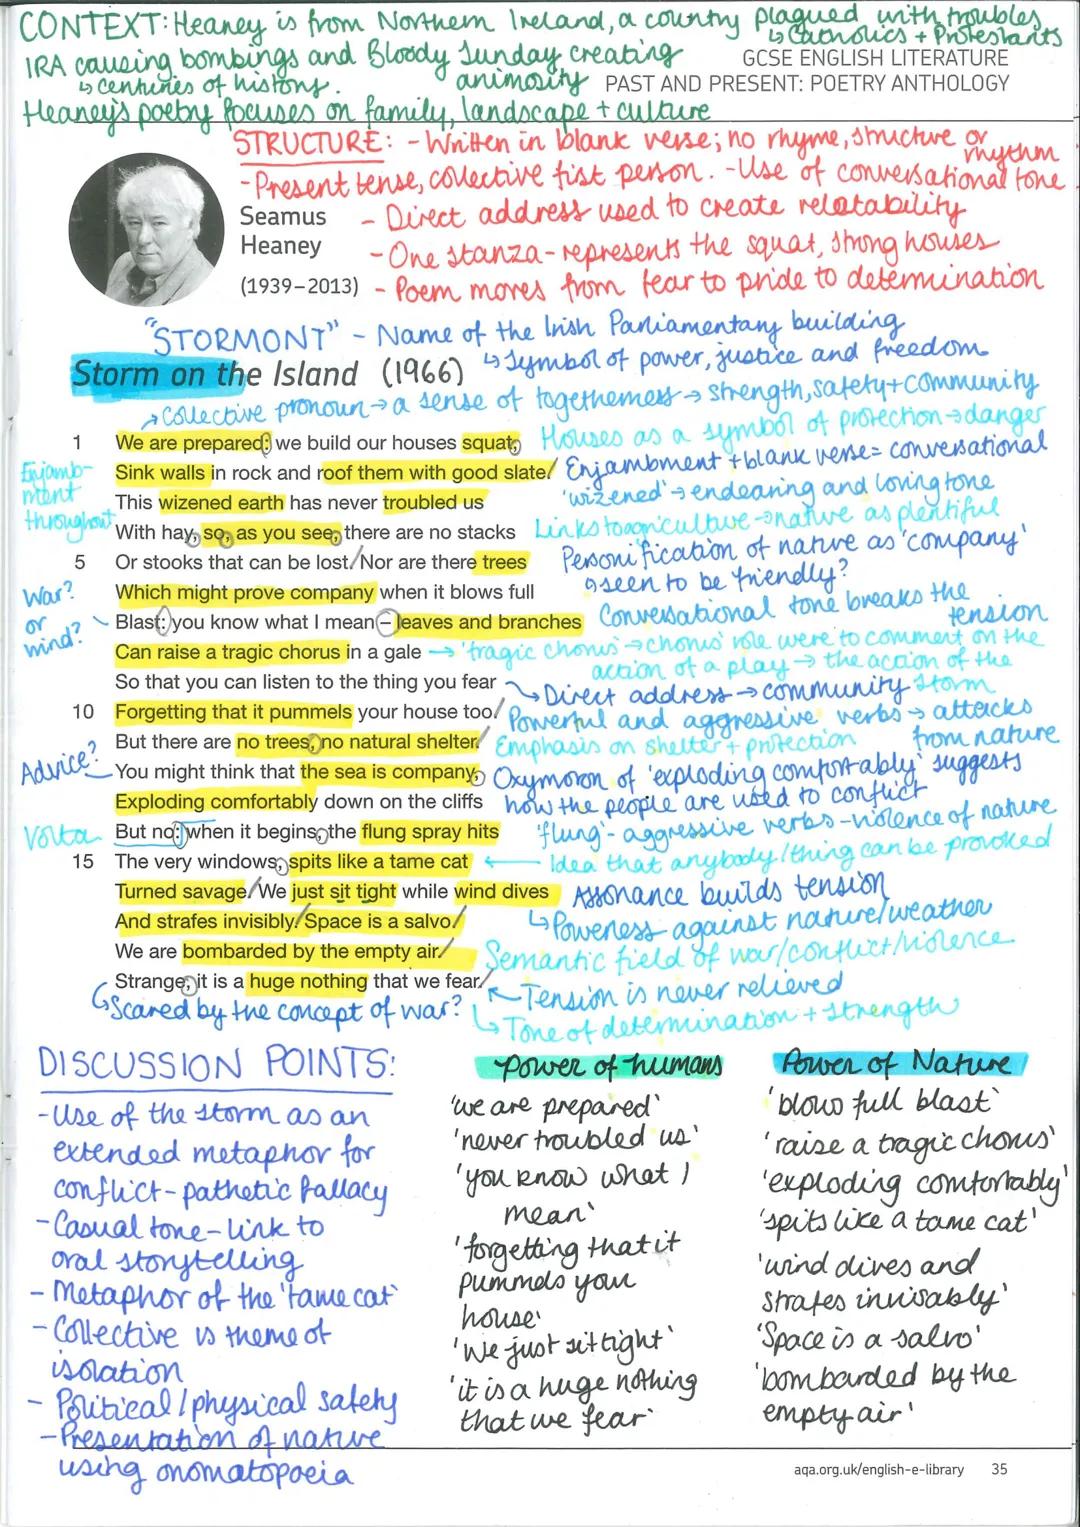 CONTEXT: Heaney is from Northern Ireland, a country plagued with troubles
↳ Catholics + Protestants
IRA causing bombings and Bloody Sunday creating
↳ centuries of history.
animosity
GCSE ENGLISH LITERATURE
PAST AND PRESENT: POETRY ANTHOLOGY
Heaney's poetry focuses on family, landscape + culture
STRUCTURE: - Written in blank verse; no rhyme, structure or
rhythm
- Present tense, collective fist person. - Use of conversational tone
Seamus
Heaney
(1939–2013)
- Direct address used to create relatability
- One stanza - represents the squat, strong houses
- Poem moves from fear to pride to determination
"STORMONT" - Name of the Irish Parliamentary building
↳ Symbol of power, justice and freedom
Storm on the Island (1966)
→ Collective pronoun → a sense of togetherness → strength, safety + community
1 We are prepared: we build our houses squat,
Houses as a symbol of protection → danger
Sink walls in rock and roof them with good slate.
Enjambment + blank verse = conversational
Enjamb-
ment
throughout
This wizened earth has never troubled us
'wizened' → endearing and loving tone
With hay, so, as you see, there are no stacks
Links to agriculture → nature as plentiful
5 Or stooks that can be lost. Nor are there trees
Personification of nature as 'company'
↳ seen to be friendly?
Which might prove company when it blows full
War?
or
wind?
Blast: you know what I mean – leaves and branches
Conversational tone breaks the
tension
Can raise a tragic chorus in a gale
→ 'tragic chorus' → chorus' role were to comment on the
action of a play → the action of the
storm
So that you can listen to the thing you fear
↳ Direct address → community
10 Forgetting that it pummels your house too.
Powerful and aggressive verbs → attacks
from nature
But there are no trees, no natural shelter.
Emphasis on shelter + protection
Advice?
You might think that the sea is company,
Oxymoron of 'exploding comfortably' suggests
Exploding comfortably down on the cliffs
how the people are used to conflict
Volta
But no: when it begins, the flung spray hits
'flung' - aggressive verbs - violence of nature
15 The very windows, spits like a tame cat
← Idea that anybody/thing can be provoked
Turned savage. We just sit tight while wind dives
Assonance builds tension
And strafes invisibly. Space is a salvo.
↳ Powerless against nature/weather
We are bombarded by the empty air.
Semantic field of war/conflict/violence
Strange, it is a huge nothing that we fear.
Tension is never relieved
↳ Scared by the concept of war?
↳ Tone of determination + strength
DISCUSSION POINTS:
- Use of the storm as an
extended metaphor for
conflict - pathetic fallacy
- Casual tone - link to
oral storytelling
- Metaphor of the 'tame cat'
- Collective vs theme of
isolation
- Political / physical safety
- Presentation of nature
using onomatopoeia
Power of humans
'we are prepared'
'never troubled us'
'you know what I
mean'
'forgetting that it
pummels your
house'
'We just sit tight'
'it is a huge nothing
that we fear'
Power of Nature
'blows full blast'
'raise a tragic chorus'
'exploding comfortably'
'spits like a tame cat'
'wind dives and
strafes invisably'
'Space is a salvo'
'bombarded by the
empty air'
aqa.org.uk/english-e-library 35